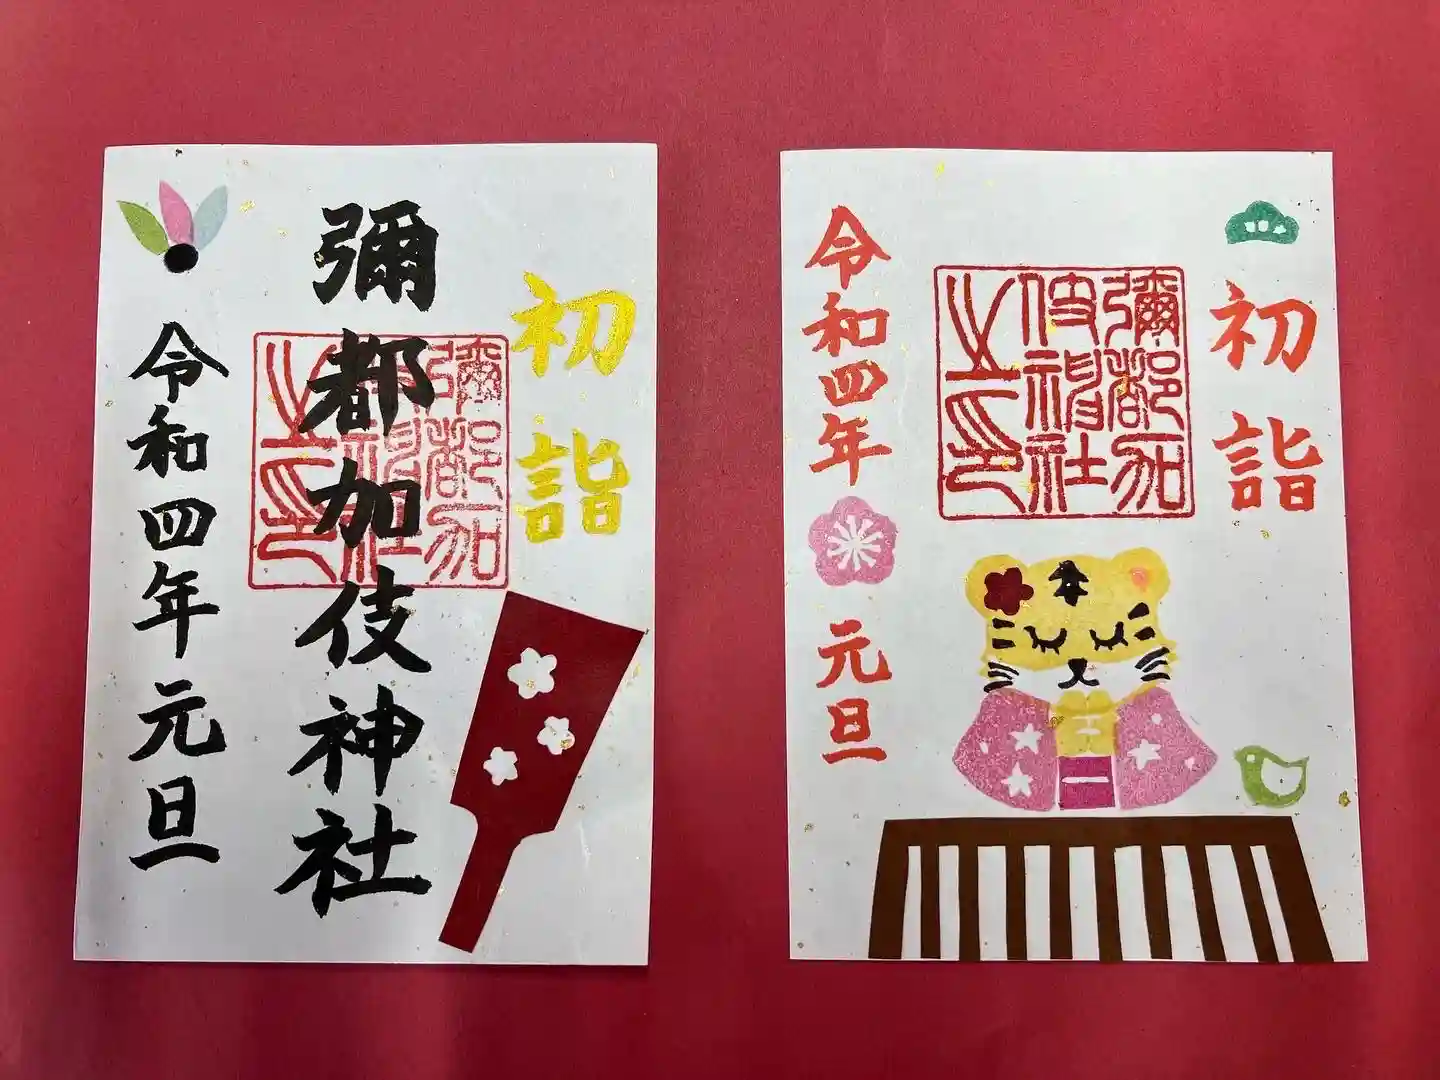 初詣
彌都加伎神社
彌都加
伎神社
之印
令和四年元旦
初詣
彌都加
伎神社
之印
令和四年
元旦